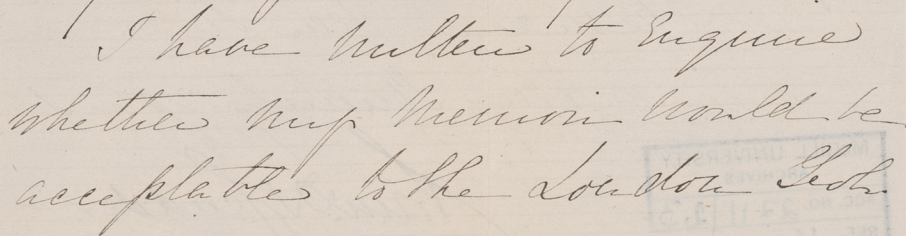 I have written to Enquire
whether my Memoir would be
acceptable to the London Geol.